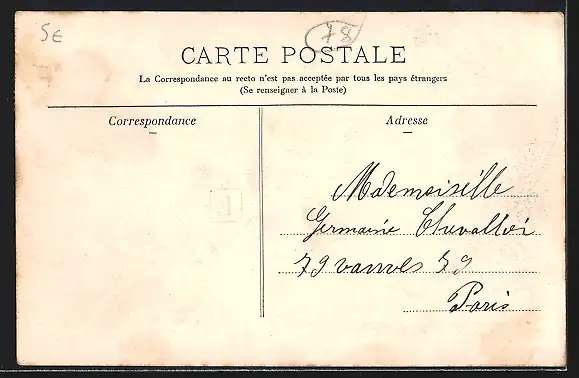 5E
78
CARTE POSTALE
La Correspondance au recto n'est pas acceptée par tous les pays étrangers
(Se renseigner à la Poste)
Correspondance
Adresse
Mademoiselle
Germaine Chevallier
79 vanves 79
Paris